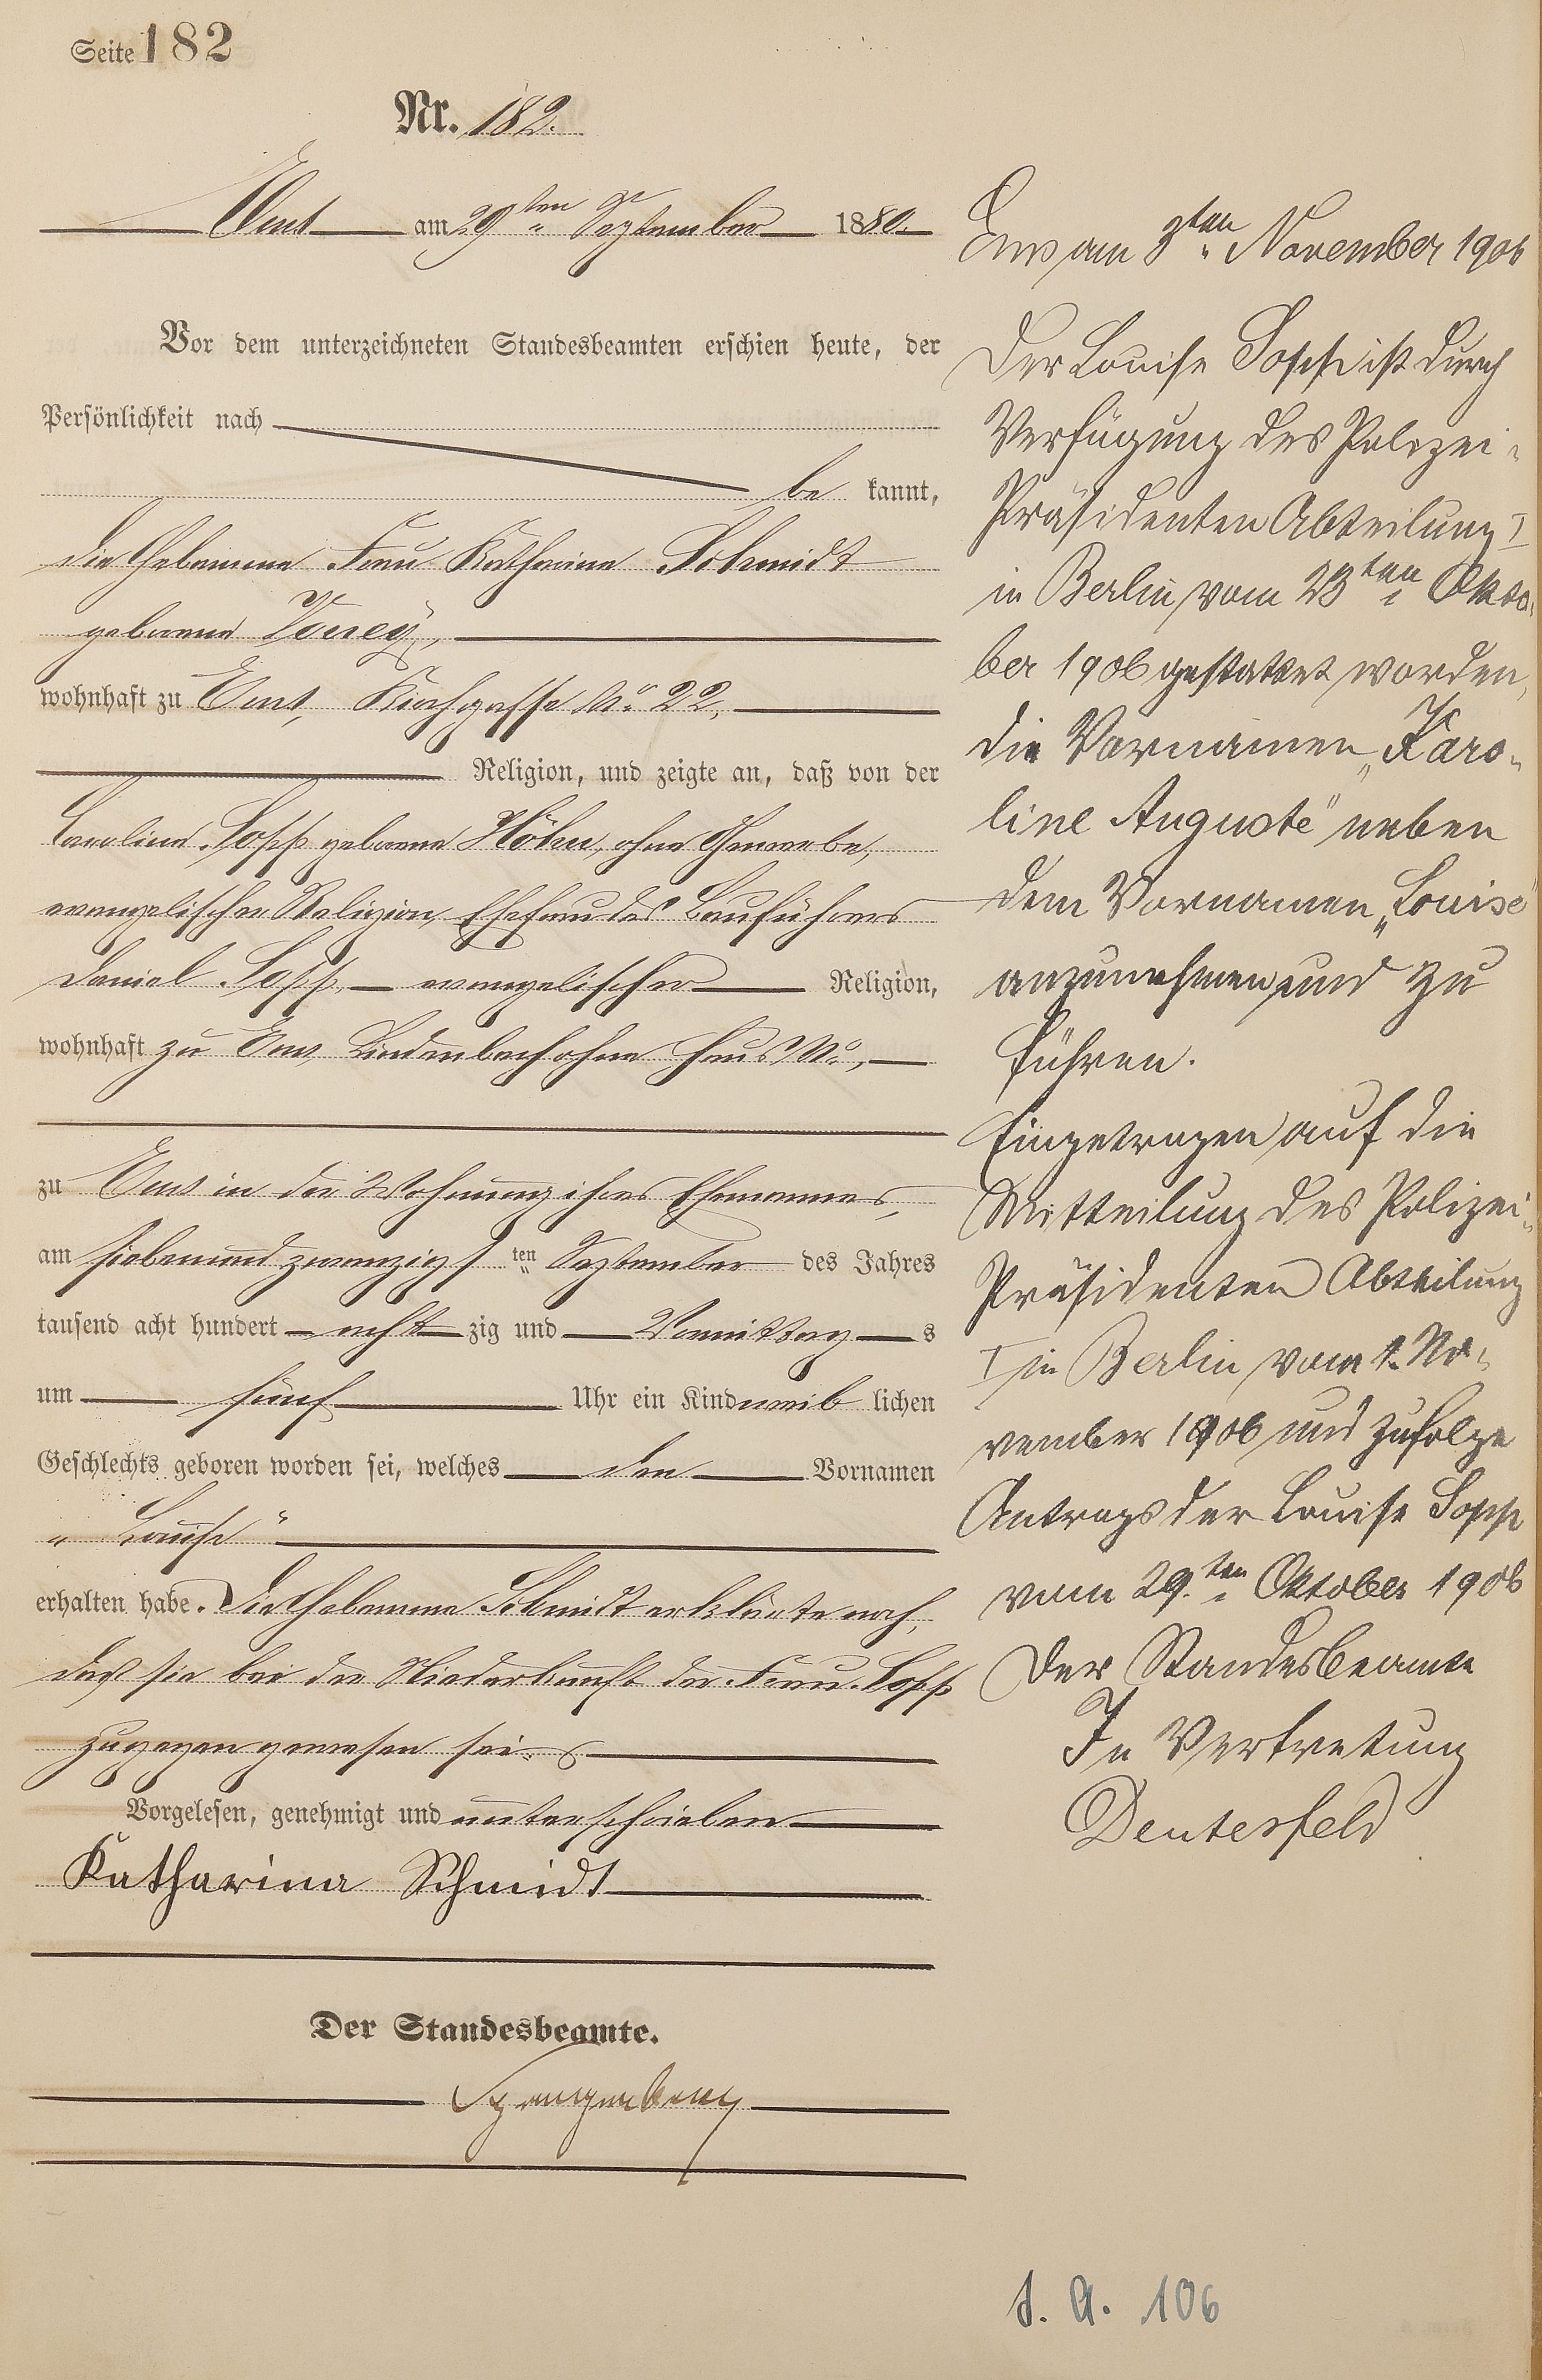 Seite 182
Nr. 182.
Ems am 29ten September 1880.
Vor dem unterzeichneten Standesbeamten erschien heute, der
Persönlichkeit nach
be kannt,
die Hebamme Frau Katharina Schmidt
geborene
wohnhaft zu Ems, Kirchgasse No 22,
Religion, und zeigte an, daß von der
Caroline Sopp geborene Höhn, ohne Gewerbe,
evangelischer Religion, Ehefrau des Bauführers
Daniel Sopp evangelischer Religion,
wohnhaft zu Ems, Lindenbach ohne Haus No,
zu Ems in der Wohnung ihres Ehemannes,
am siebenundzwanzigsten September des Jahres
tausend acht hundert achtzig und Vormittags
um fünf Uhr ein Kind weiblichen
Geschlechts geboren worden sei, welches den Vornamen
„Louise"
erhalten habe. Die Hebamme Schmidt erklärte noch,
daß sie bei der Niederkunft der Frau Sopp
zugegen gewesen sei.
Vorgelesen, genehmigt und unterschrieben
Katharina Schmidt
Der Standesbeamte.
Spangenberg
Ems am 3ten November 1906
Der Louise Sopp ist durch
Verfügung des Polizei-
Präsidenten Abteilung I
in Berlin vom 23ten Okto-
ber 1906 gestattet worden,
die Vornamen „Karo-
line Auguste" neben
dem Vornamen „Louise"
anzunehmen und zu
führen.
Eingetragen auf die
Mitteilung des Polizei-
Präsidenten Abteilung
I in Berlin vom 1. No-
vember 1906 und zufolge
Antrags der Louise Sopp
vom 29.ten Oktober 1906
Der Standesbeamte
In Vertretung
Deutesfeld
S. A. 106